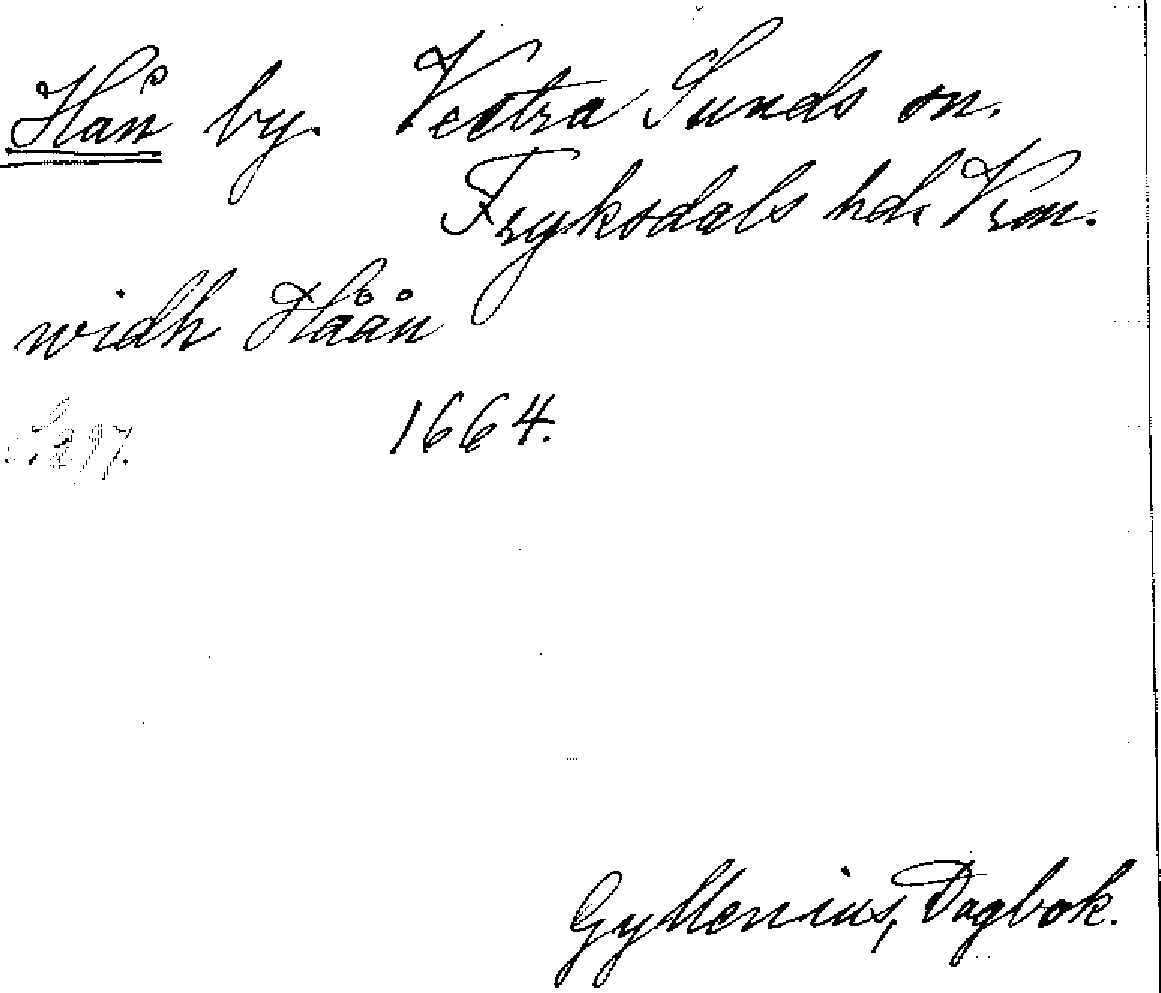 Hån by. Vestra Sunds sn.
Fryksdals hd. Vrm.
widh Håån
1664.
Gyllenius, Dagbok.